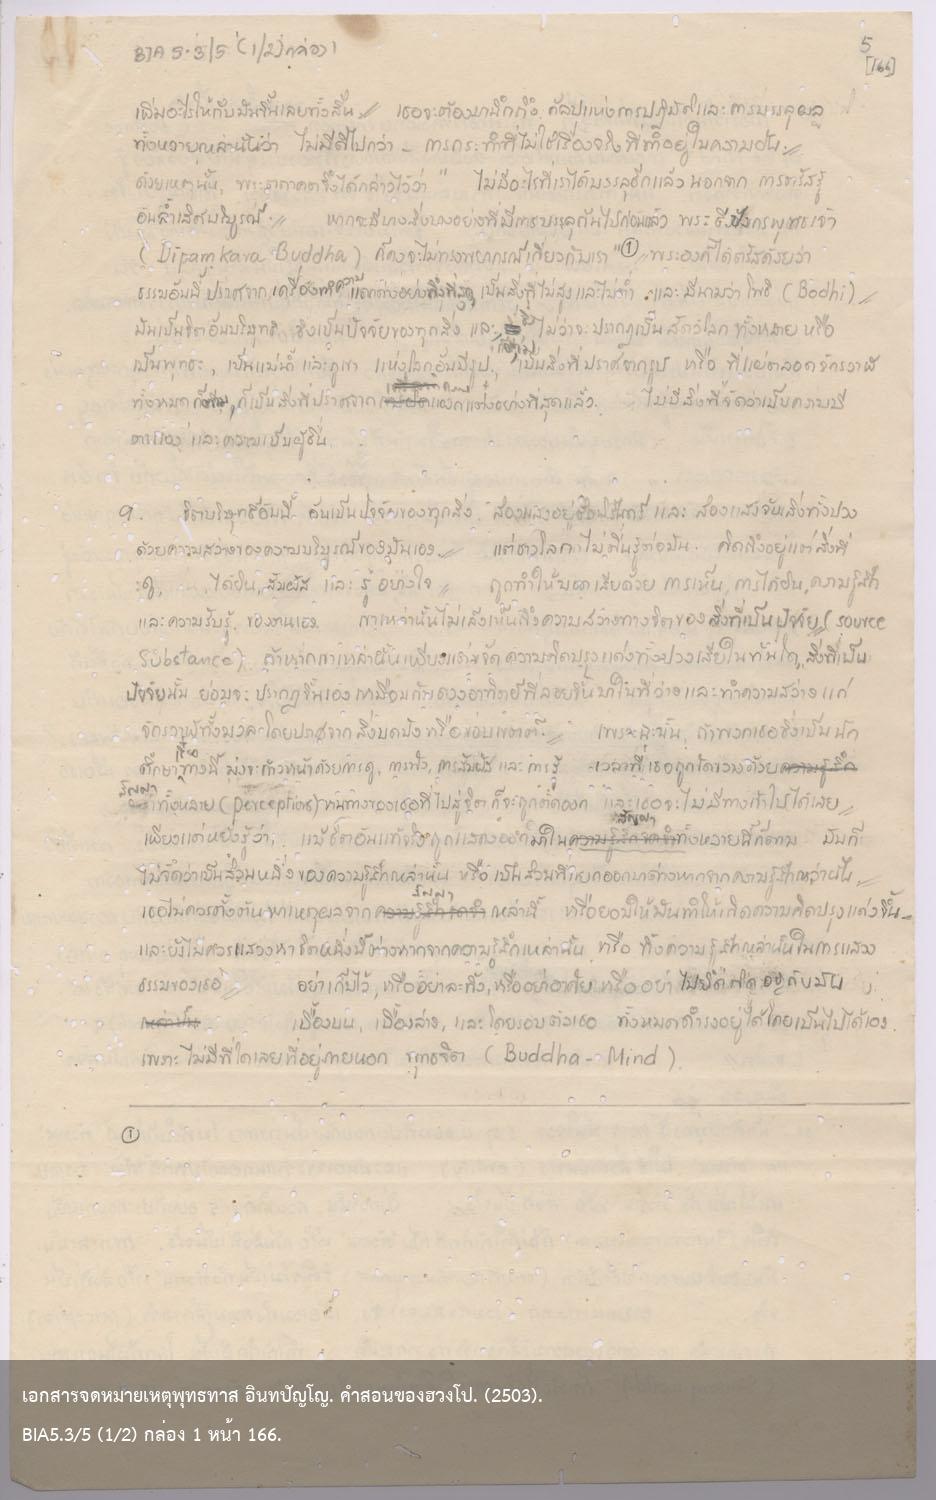 BIA 5.3/5 (1/2) กล่อง 1
5
[166]
เพิ่มอะไรให้กับมันขึ้นเลยทั้งสิ้น // เธอจะต้อง การปฏิบัติและ การบรรลุผล
ทั้งหลายเหล่านี้ว่า ไม่มีดีไปกว่า - การกระทำที่ไม่ใช่เรื่องจริง ที่ทำอยู่ในความฝัน. //
ด้วยเหตุนั้น, พระตถาคตจึงได้กล่าวไว้ว่า " ไม่มีอะไรที่เราได้บรรลุอีกแล้ว นอกจาก การตรัสรู้
อันล้ำเลิศสมบูรณ์. // หากจะมีบางสิ่งบางอย่างที่มีการบรรลุกันไปก่อนแล้ว พระ ทีปังกรพุทธเจ้า
(Dipamkara Buddha) ก็คงจะไม่ทรงพยากรณ์เกี่ยวกับเรา" ① // พระองค์ได้ตรัสด้วยว่า
ธรรมอันนี้ ปราศจาก แตกต่างอย่างที่สุด, เป็นสิ่งที่ไม่สูงและไม่ต่ำ และ มีนามว่า โพธิ (Bodhi) //
มันเป็นจิตอันบริสุทธิ์ ซึ่งเป็นปัจจัยของทุกสิ่ง และ, ไม่ว่าจะปรากฏเป็น สัตว์โลก ทั้งหลาย หรือ
เป็นพุทธะ, เป็นแม่น้ำ และภูเขา แห่งโลกอันมีรูป, เป็นสิ่งที่ปราศจากรูป หรือ ที่แผ่ตลอดจักรวาล
ทั้งหมด ก็ตาม, ก็เป็นสิ่งที่ปราศจาก ความแตกต่างอย่างที่สุดแล้ว. ไม่มีสิ่งที่จัดว่าเป็นความมี
ตัวเอง และความเป็นผู้อื่น.
๙. จิตบริสุทธิ์อันนี้ อันเป็นปัจจัยของทุกสิ่ง ส่องแสงอยู่ และ ส่องแสงจับสิ่งทั้งปวง
ด้วยความสว่างของความสมบูรณ์ของมันเอง. // แต่ชาวโลกไม่ตื่นรู้ต่อมัน. คิดถึงอยู่แต่สิ่งที่
ได้ดู, ได้ยิน, สัมผัส และ รู้ อย่างใจ // ถูกทำให้บอดเสียด้วย การเห็น, การได้ยิน, ความรู้สึก
และความรับรู้ ของตนเอง เขาเหล่านั้นไม่เล็งเห็นถึงความสว่างทางจิตของสิ่งที่เป็นปัจจัย (source
Substance). ถ้าหากเขาเหล่านั้นเพียงแต่ขจัด ความคิดปรุงแต่งทั้งปวงเสียในทันใด, สิ่งที่เป็น
ปัจจัยนั้น ย่อมจะ ปรากฏขึ้นเอง เหมือนกับดวงอาทิตย์ที่ลอยขึ้นมาในที่ว่าง และทำความสว่าง แก่
จักรวาลทั้งมวลโดยปราศจาก สิ่งบดบัง หรือขอบเขตต์. // เพราะฉะนั้น, ถ้าพวกเธอซึ่งเป็นนัก
ศึกษาเรื่อทางนี้ มุ่งจะก้าวหน้าด้วยการดู, การฟัง, การสัมผัส และ การรู้ เวลาที่เธอถูกตัดขวางด้วย ความรู้สึก
สัญญา ทั้งหลาย (perceptions) หนทางของเธอที่ไปสู่ จิต ก็จะถูกตัดออก และเธอจะไม่มีทางเข้าไปได้เลย //
เพียงแต่หยั่งรู้ว่า, แม้จิตอันแท้จริงถูกแสดงออกมาใน ความรู้สึกจดจำ สัญญา ทั้งหลายนี้ก็ตาม มันก็
ไม่จัดว่าเป็นส่วนหนึ่งของความรู้สึกเหล่านั้น หรือ เป็นส่วนที่แยกออกมาต่างหากจากความรู้สึกเหล่านั้น. //
เธอไม่ควรตั้งต้น หาเหตุผลจาก ความรู้สึกจดจำ สัญญา เหล่านี้ หรือยอมให้มันทำให้เกิดความคิดปรุงแต่งขึ้น -
และยังไม่ควรแสวงหา จิตหนึ่งนี้ต่างหากจากความรู้สึกเหล่านั้น หรือ ทิ้งความรู้สึกเหล่านั้นในการแสวง
ธรรมของเธอ // อย่าเก็บไว้, หรืออย่าละทิ้ง, หรืออย่าอาศัย หรือ อย่า ไปยึดติดอยู่กับมัน ;
เหล่านั้น เบื้องบน, เบื้องล่าง, และ โดยรอบตัวเธอ ทั้งหมดดำรงอยู่ได้โดยเป็นไปได้เอง.
เพราะ ไม่มีที่ใดเลยที่อยู่ภายนอก พุทธจิต (Buddha-Mind).
①
เอกสารจดหมายเหตุพุทธทาส อินทปัญโญ. คำสอนของฮวงโป. (2503).
BIA5.3/5 (1/2) กล่อง 1 หน้า 166.